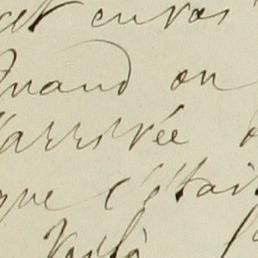 cet envoi
Quand on
l'arrivée
que c'était
Voilà